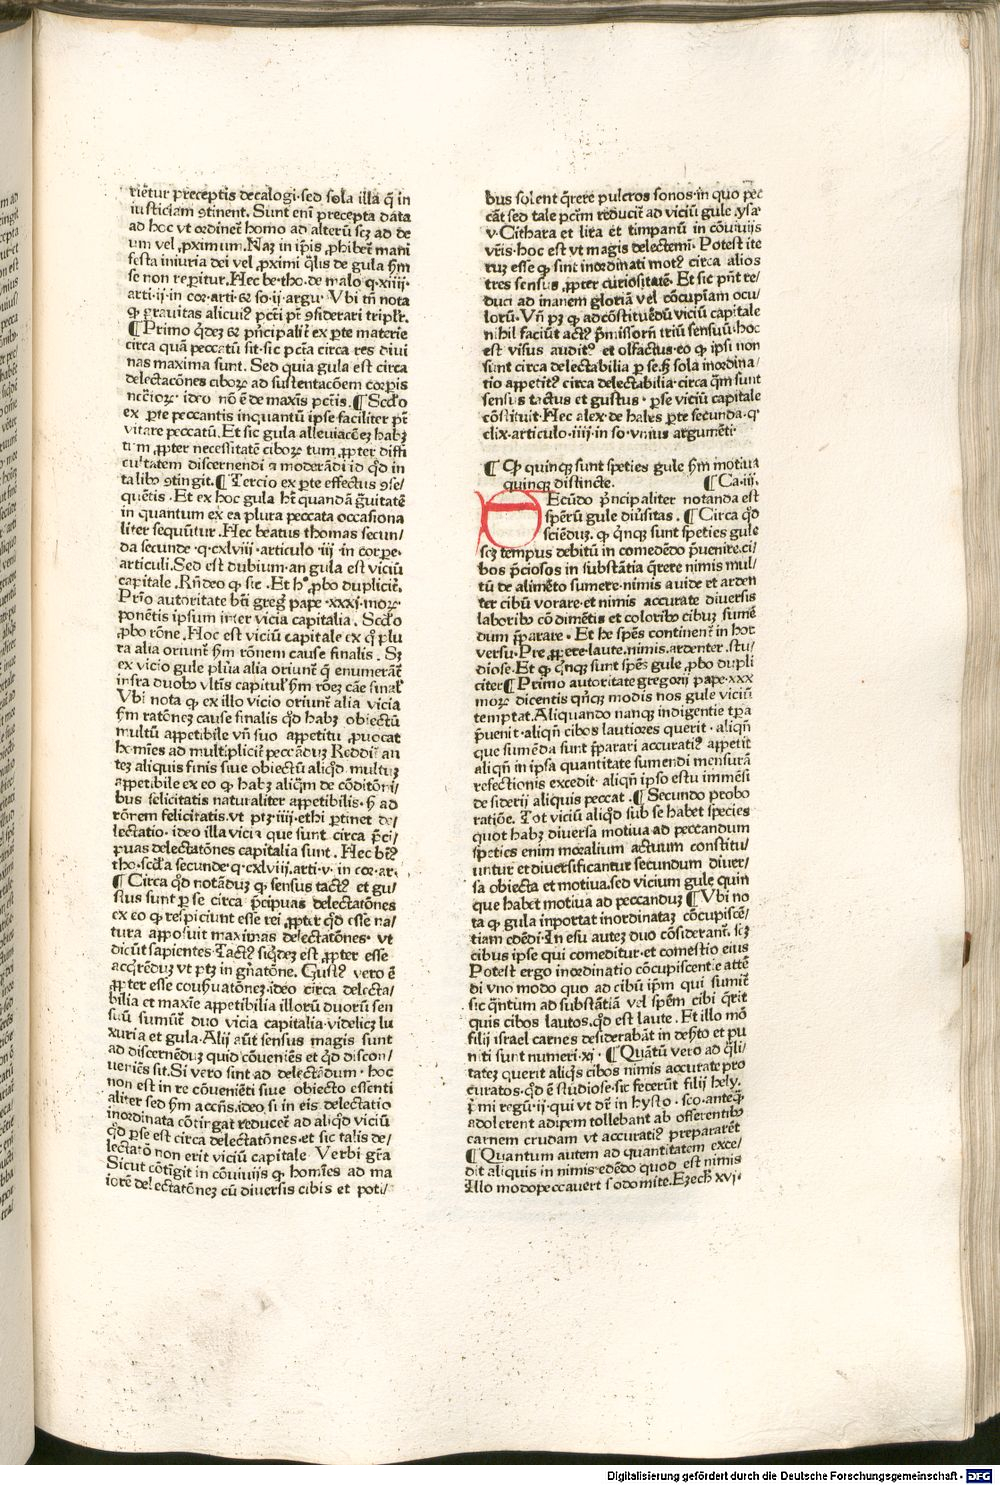 riẽtur preceptis decalogi·sed sola illa q̃ in
iusticiam ꝯtinent. Sunt eni᷑ precepta data
ad hoc vt ordinet᷑ homo ad alterũ scꝫ ad de
um vel ꝓximum. Naꝫ in ip̃is ꝓhibet᷑ mani
festa iniuria dei vel ꝓximi q̃lis de gula s̃m
se non reꝑitur. Hec be·tho·de malo q·xiiij·
arti·ij·in cor·arti·⁊ so·ij·argu· Vbi tñ nota
ꝙ grauitas alicuiꝰ pct̃i p̃t ꝯsiderari triplr̃.
¶ Primo q̃deꝫ ⁊ p̃ncipalit̃ ex ꝑte materie
circa quã peccatũ sit·sic pct̃a circa res diui
nas maxima sunt. Sed quia gula est circa
delectacões ciboꝝ ad sustentacõem corꝑis
nc̃c̃rioꝝ· ideo nõ ẽ de maxĩs pct̃is. ¶ Scd̃o
ex ꝑte peccantis inquantũ ipse faciliter p̃t
vitare peccatũ. Et sic gula alleuiacẽꝫ habꝫ
tum ꝓpter necessitatẽ ciboꝝ tum ꝓpter diffi
cultatem discernendi ⁊ moderãdi id qd̃ in
talibꝰ ꝯtingit. ¶ Tercio ex ꝑte effectus ꝯse/
quẽtis. Et ex hoc gula hȝ quandã g̃uitatẽ
in quantum ex ea plura peccata occasiona
liter sequũtur. Hec beatus thomas secun/
da secunde·q·cxlviij·articulo·iij·in corpe·
articuli. Sed est dubium·an gula est viciũ
capitale. Rñdeo ꝙ sic. Et hͦ ꝓbo duplicit̃.
Primo autoritate bt̃i greg̃ pape·xxxj·moꝝ
ponẽtis ipsum inter vicia capitalia. Scd̃o
ꝓbo rõne. Hoc est viciũ capitale ex qͦ plu
ra alia oriunt᷑ s̃m rõnem cause finalis. Sꝫ
ex vicio gule plũa alia oriunt᷑ q̃ enumerãt᷑
infra duobꝰ vltĩs capitul̃ s̃m rõeꝫ cãe final̃
Vbi nota ꝙ ex illo vicio oriunt᷑ alia vicia
s̃m ratõneꝫ cause finalis qd̃ habꝫ obiectũ
multũ appetibile vñ suo appetitu ꝓuocat
homĩes ad multiplicit̃ peccãduꝫ Reddit᷑ an
teꝫ aliquis finis siue obiectũ aliqd̃ multuꝫ
appetibile ex eo ꝙ habꝫ aliq̃m de cõditõni/
bus felicitatis naturaliter appetibilis· hͦ ad
rõnem felicitatis·vt ptꝫ·iiij·ethi ꝑtinet de/
lectatio· ideo illa vicia que sunt circa p̃ci/
puas delectatõnes capitalia sunt. Hec btũs
tho·scd̃a secunde·q·cxlviij·arti·v·in cor·ar·
¶ Circa qd̃ notãduꝫ ꝙ sensus tactꝰ et gu/
stus sunt ꝑ se circa p̃cipuas delectatõnes
ex eo ꝙ respiciunt esse rei ꝓpter qd̃ esse na/
tura apposuit maximas delectatõnes· vt
dicũt sapientes·Tactꝰ siq̃deꝫ est ꝓpter esse
acq̃rẽduꝫ vt ptꝫ in gñatõne. Gustꝰ vero ẽ
ꝓpter esse cõseruatõneꝫ·ideo circa delecta/
bilia et maxĩe appetibilia illorũ duorũ sen
suũ sumũt᷑ duo vicia capitalia·videlicꝫ lu
xuria et gula·Alij aũt sensus magis sunt
ad discernẽduꝫ quid cõueniẽs et qd̃ discon/
ueniẽs sit. Si vero sint ad delectãdum·hoc
non est in re cõueniẽti siue obiecto essenti
aliter sed s̃m accñs·ideo si in eis delectatio
inordinata cõtingat reducet᷑ ad aliqd̃ viciũ
qd̃ ꝑse est circa delectatõnes·et sic talis de/
lectatõ non erit viciũ capitale Verbi gr̃a
Sicut cõtĩgit in cõuiuijs ꝙ homĩes ad ma
iorẽ delectatõneꝫ cũ diuersis cibis et poti/
bus solent q̃rere pulcros sonos·in quo pec
cãt sed tale pctm̃ reducit᷑ ad viciũ gule·ysa·
v·Cithara et lira et timpanũ in cõuiuijs
vr̃is·hoc est vt magis delectemĩ·Potest ite
ruꝫ esse ꝙ sint inordinati motꝰ circa alios
tres sensus ꝓpter curiositatẽ. Et sic pñt re/
duci ad inanem gloriã vel cõcupĩam ocu/
lorũ·Vñ pꝫ ꝙ ad cõstituẽdũ viciũ capitale
nihil faciũt actꝰ p̃missorũ triũ sensuũ·hoc
est visus auditꝰ et olfactus·eo ꝙ ipsi non
sunt circa delectabilia ꝑ se·sꝫ sola inordina/
tio appetitꝰ circa delectabilia·circa q̃m sunt
sensus tactus et gustus·ꝑse viciũ capitale
cõstituit·Hec alex·de hales ꝑte secunda·q·
clix·articulo·iiij·in so·vnius argumẽti·
¶ Ꝙ quinqꝫ sunt species gule s̃m motiua
quinqꝫ distincte. ¶ Ca·iij·
Ecũdo p̃ncipaliter notanda est
sp̃erũ gule diũsitas. ¶ Circa qd̃
sciẽduꝫ· ꝙ q̃nqꝫ sunt species gule
scꝫ tempus debitũ in comedẽdo p̃uenire·ci/
bos p̃ciosos in substãtia q̃rere nimis mul/
tũ de alimẽto sumere·nimis auide et arden
ter cibũ vorare·et nimis accurate diuersis
laboribꝰ cõdimẽtis et coloribꝰ cibuꝫ sumẽ
dum p̃parare. Et he sp̃es continent᷑ in hoc
versu·Pre ꝓpere·laute·nimis·ardenter·stu/
diose·Et ꝙ q̃nqꝫ sunt sp̃es gule ꝓbo dupli
citer ¶ Primo autoritate gregorij pape·xxx
moꝝ dicentis qñqꝫ modis nos gule viciũ
temptat. Aliquando nanqꝫ indigentie tp̃a
p̃uenit·aliqñ cibos lautiores querit·aliqñ
que sumẽda sunt p̃parari accuratiꝰ appetit
aliqñ in ipsa quantitate sumendi mensurã
refectionis excedit·aliqñ ipso estu immẽsi
desiderij aliquis peccat. ¶ Secundo probo
ratiõe. Tot viciũ aliqd̃ sub se habet species
quot habꝫ diuersa motiua ad peccandum
species enim moralium actuum constitu/
untur et diuersificantur secundum diuer/
sa obiecta et motiua·sed vicium gule quin
que habet motiua ad peccanduꝫ ¶ Vbi no
ta ꝙ gula inportat inordinataꝫ cõcupiscẽ/
tiam edẽdi·In esu auteꝫ duo cõsiderant᷑·scꝫ
cibus ipse qui comeditur·et comestio eius
Potest ergo inordinatio cõcupiscentie attẽ
di vno modo quo ad cibũ ip̃m qui sumit᷑
sic q̃ntum ad substãtiã vel sp̃em cibi q̃rit
quis cibos lautos·qd̃ est laute·Et illo mõ
filij israel carnes desiderabãt in deserto et pu
niti sunt numeri·xj· ¶ Quãtũ vero ad q̃li/
tateꝫ querit aliq̃s cibos nimis accurate pro
curatos·qd̃ ẽ studiose·sic fecerũt filij hely·
p̃mi regũ·ij·qui vt dr̃ in hysto·sco·anteq̃ꝫ
adolerent adipem tollebant ab offerentibꝰ
carnem crudam vt accuratiꝰ prepararẽt
¶ Quantum autem ad quantitatem exce/
dit aliquis in nimis·edẽdo quod est nimis
Illo modo peccauert̃ sodomite. Ezech̃ xvj·
Digitalisierung gefördert durch die Deutsche Forschungsgemeinschaft - DFG